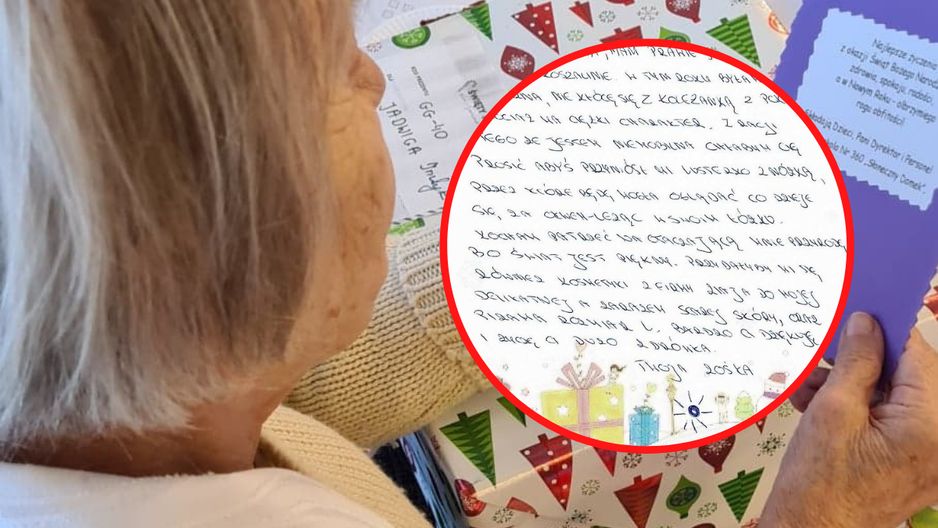 , MAM PRAWIE
KOSZALINIE. W TYM ROKU BYŁA
NIE KŁÓCĘ SIĘ Z KOLEŻANKĄ Z
CIĄŻ MA CIĘŻKI CHARAKTER. Z RACJI
TEGO ŻE JESTEM NIEMOBILNA CHCIAŁABYM CIĘ
PROSIĆ ABYŚ PRZYNIÓSŁ MI LUSTERKO Z NÓŻKĄ,
PRZEZ KTÓRE BĘDĘ MOGŁA OGLĄDAĆ CO DZIEJE
SIĘ, ZA OKNEM-LEŻĄC W SWOIM ŁÓŻKU.
KOCHAM PATRZEĆ NA OTACZAJĄCĄ MNIE PRZYRODĘ
BO ŚWIAT JEST PIĘKNY. PRZYDAŁYBY MI SIĘ
RÓWNIEŻ KOSMETYKI Z FIRMY ZIAJA DO MOJEJ
DELIKATNEJ A ZARAZEM STAREJ SKÓRY, ORAZ
PIŻAMA ROZMIAR L. BARDZO CI DZIĘKUJĘ
I ŻYCZĘ CI DUŻO ZDRÓWKA.
TWOJA ZOŚKA
JADWIGA
GG-40
Najlepsze życzenia
z okazji Świąt Bożego Narodz
zdrowia, spokoju, radości,
a w Nowym Roku - olbrzymiego
rogu obfitości!
Składają Dzieci, Pani Dyrektor i Personel
Nr 360 „Słoneczny Domek"